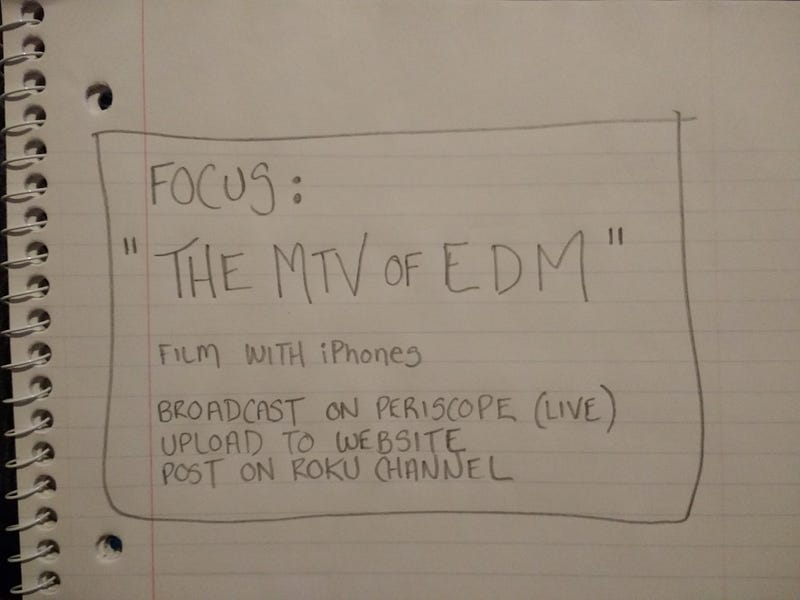 FOCUS:
"THE MTV OF EDM"
FILM WITH iPhones
BROADCAST ON PERISCOPE (LIVE)
UPLOAD TO WEBSITE
POST ON ROKU CHANNEL